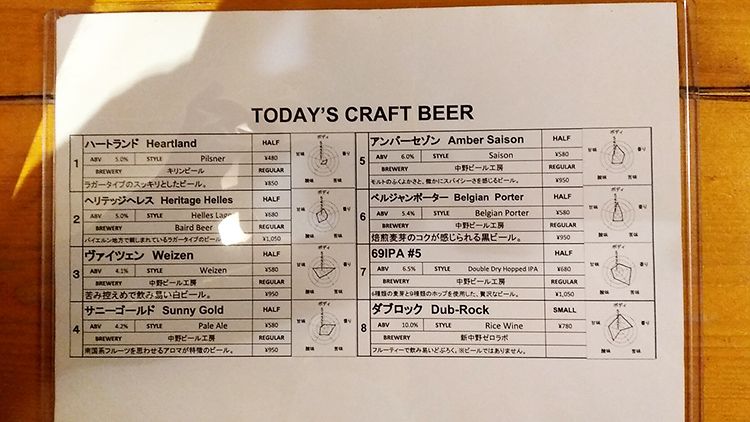 TODAY'S CRAFT BEER
1 ハートランド Heartland HALF
ABV 5.0% STYLE Pilsner ¥480
BREWERY キリンビール REGULAR
ラガータイプのスッキリとしたビール。 ¥850
ボディ
甘味 香り
酸味 苦味
2 ヘリテッジヘレス Heritage Helles HALF
ABV 5.0% STYLE Helles Lager ¥680
BREWERY Baird Beer REGULAR
バイエルン地方で親しまれているラガータイプのビール ¥1,050
ボディ
甘味 香り
酸味 苦味
3 ヴァイツェン Weizen HALF
ABV 4.1% STYLE Weizen ¥580
BREWERY 中野ビール工房 REGULAR
苦み控えめで飲み易い白ビール。 ¥950
ボディ
甘味 香り
酸味 苦味
4 サニーゴールド Sunny Gold HALF
ABV 4.2% STYLE Pale Ale ¥580
BREWERY 中野ビール工房 REGULAR
南国系フルーツを思わせるアロマが特徴のビール。 ¥950
ボディ
甘味 香り
酸味 苦味
5 アンバーセゾン Amber Saison HALF
ABV 6.0% STYLE Saison ¥580
BREWERY 中野ビール工房 REGULAR
モルトのふくよかさと、微かにスパイシーさを感じるビール。 ¥950
ボディ
甘味 香り
酸味 苦味
6 ベルジャンポーター Belgian Porter HALF
ABV 5.4% STYLE Belgian Porter ¥580
BREWERY 中野ビール工房 REGULAR
焙煎麦芽のコクが感じられる黒ビール。 ¥950
ボディ
甘味 香り
酸味 苦味
7 69IPA #5 HALF
ABV 6.5% STYLE Double Dry Hopped IPA ¥680
BREWERY 中野ビール工房 REGULAR
6種類の麦芽と9種類のホップを使用した、贅沢なビール。 ¥1,050
ボディ
甘味 香り
酸味 苦味
8 ダブロック Dub-Rock SMALL
ABV 10.0% STYLE Rice Wine ¥780
BREWERY 新中野ゼロラボ
フルーティーで飲み易いどぶろく。※ビールではありません。
ボディ
甘味 香り
酸味 苦味